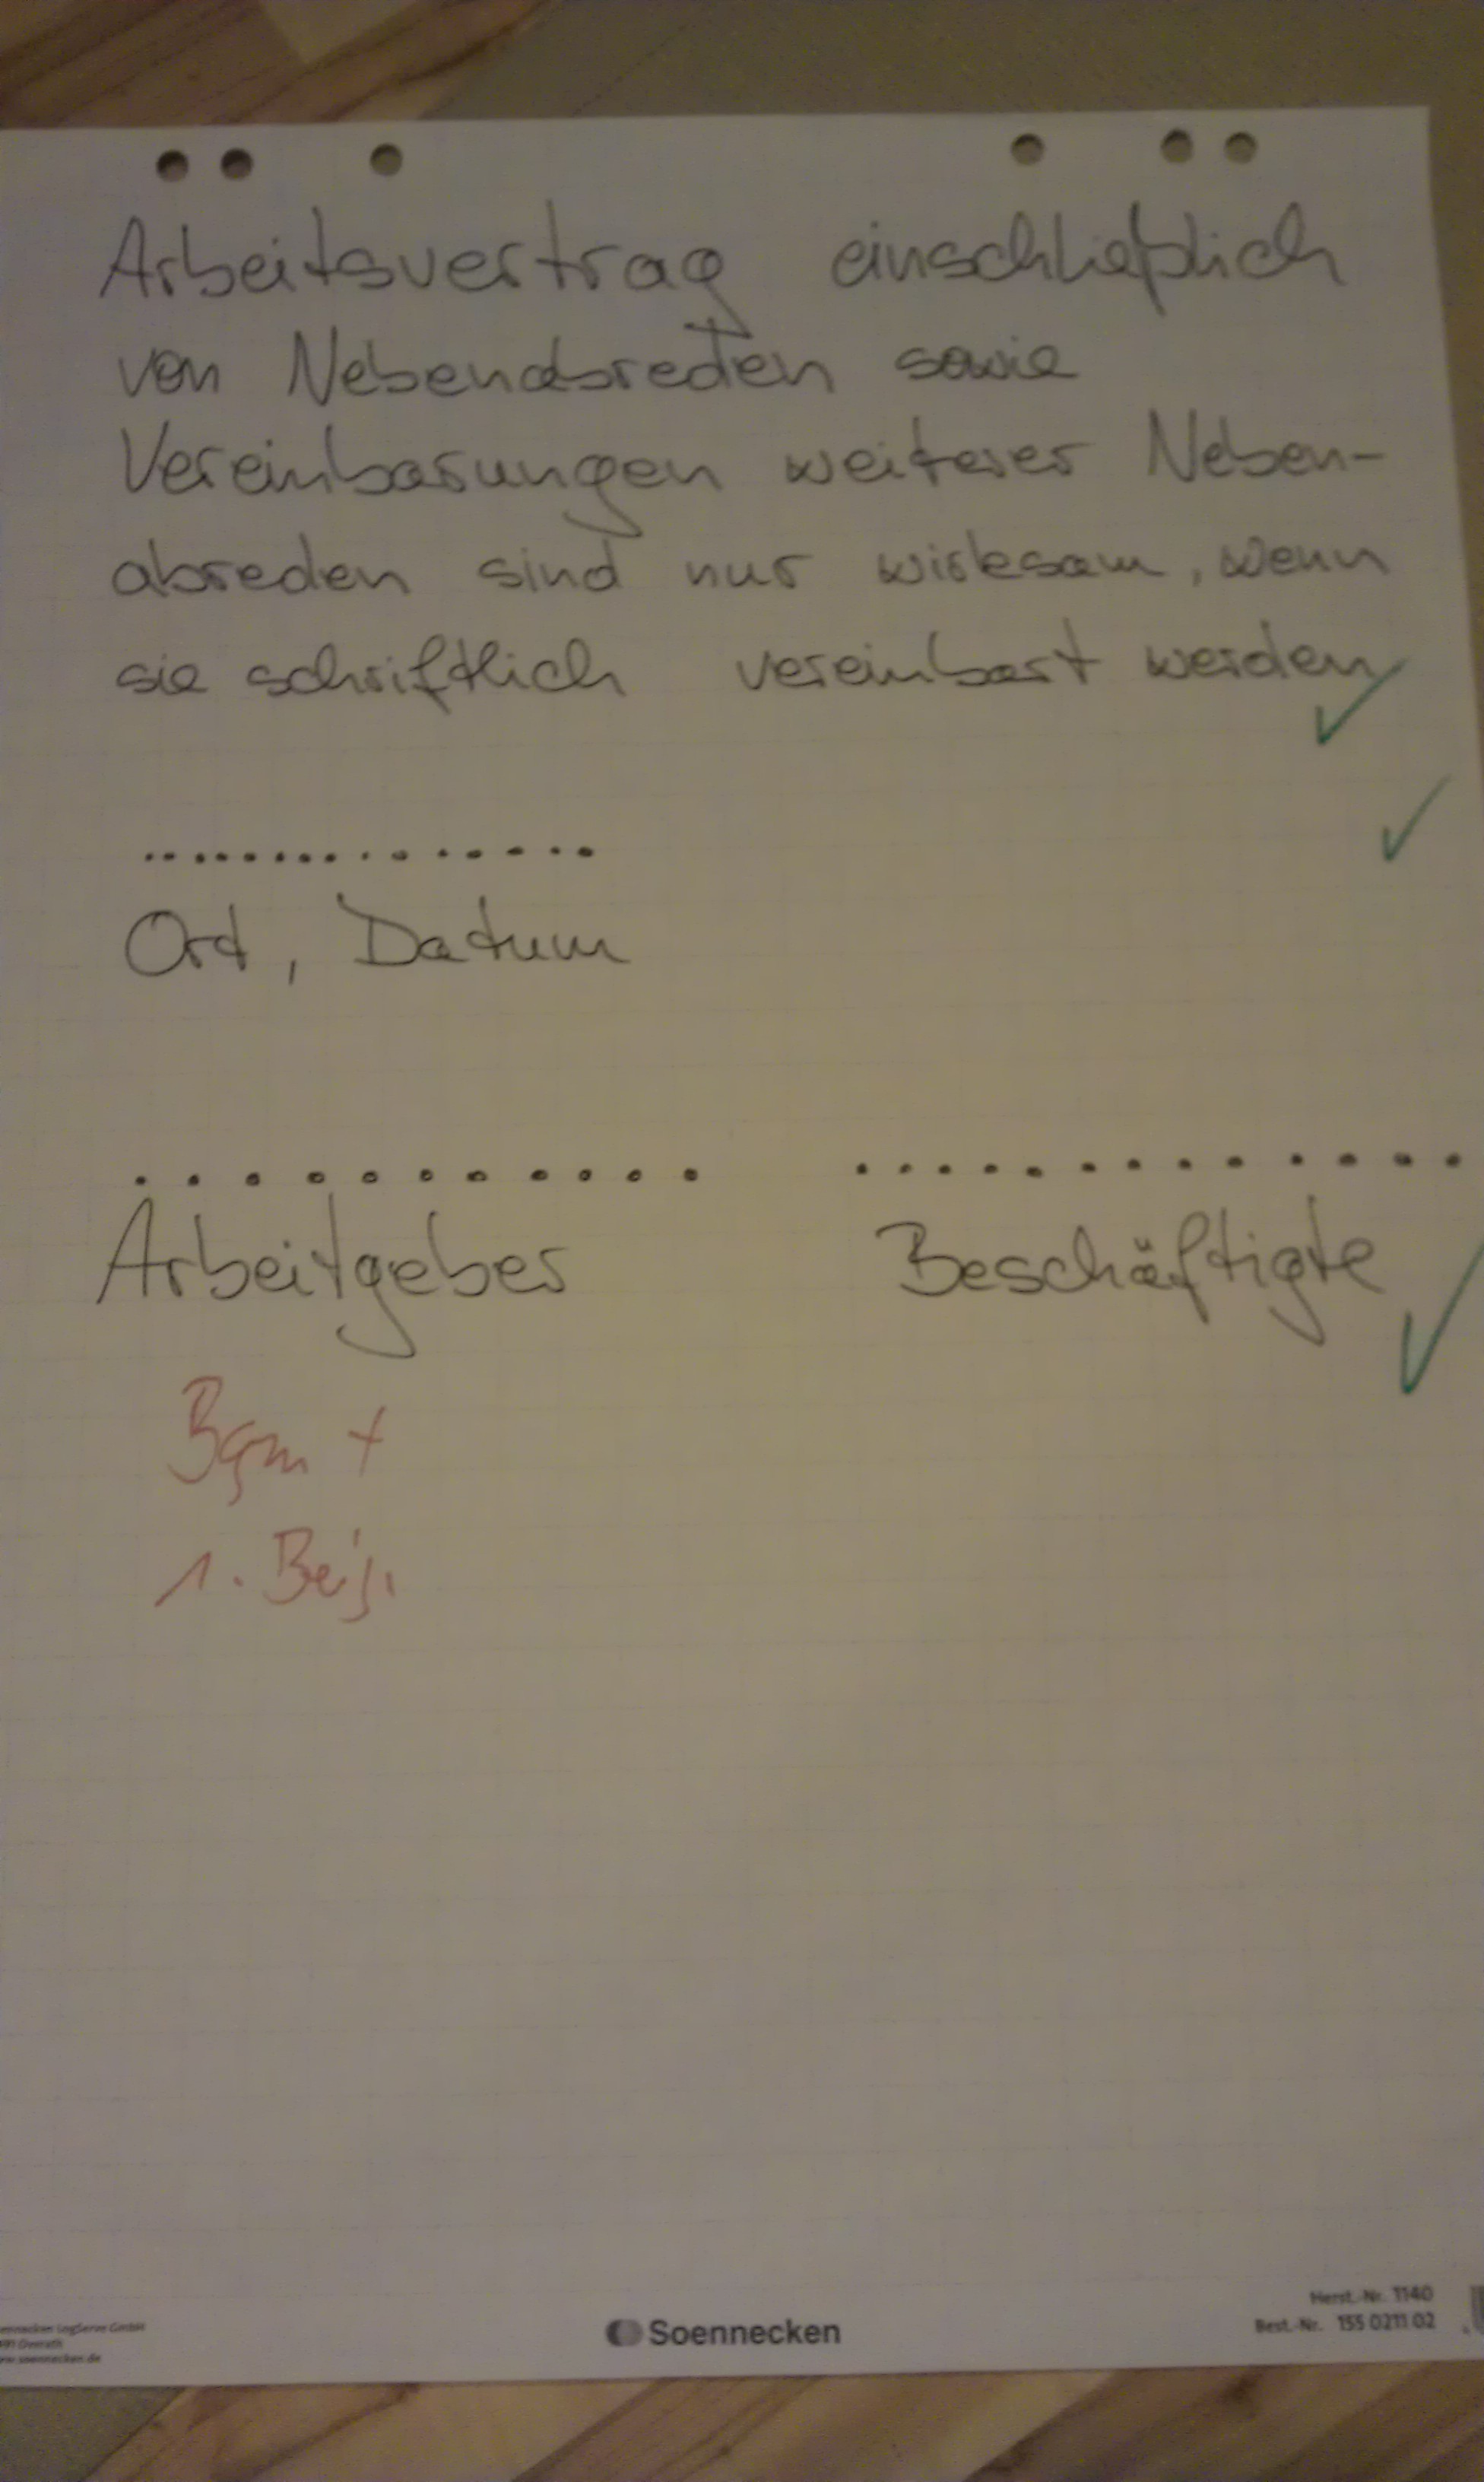 Arbeitsvertrag einschließlich
von Nebenabreden sowie
Vereinbarungen weiterer Neben-
abreden sind nur wirksam, wenn
sie schriftlich vereinbart werden
Ort, Datum
Arbeitgeber Beschäftigte
Bgm +
1. Beig.
Herst.-Nr. 1140
Best.-Nr. 155 0211 02
Soennecken
LogServe GmbH
Overath
soennecken.de